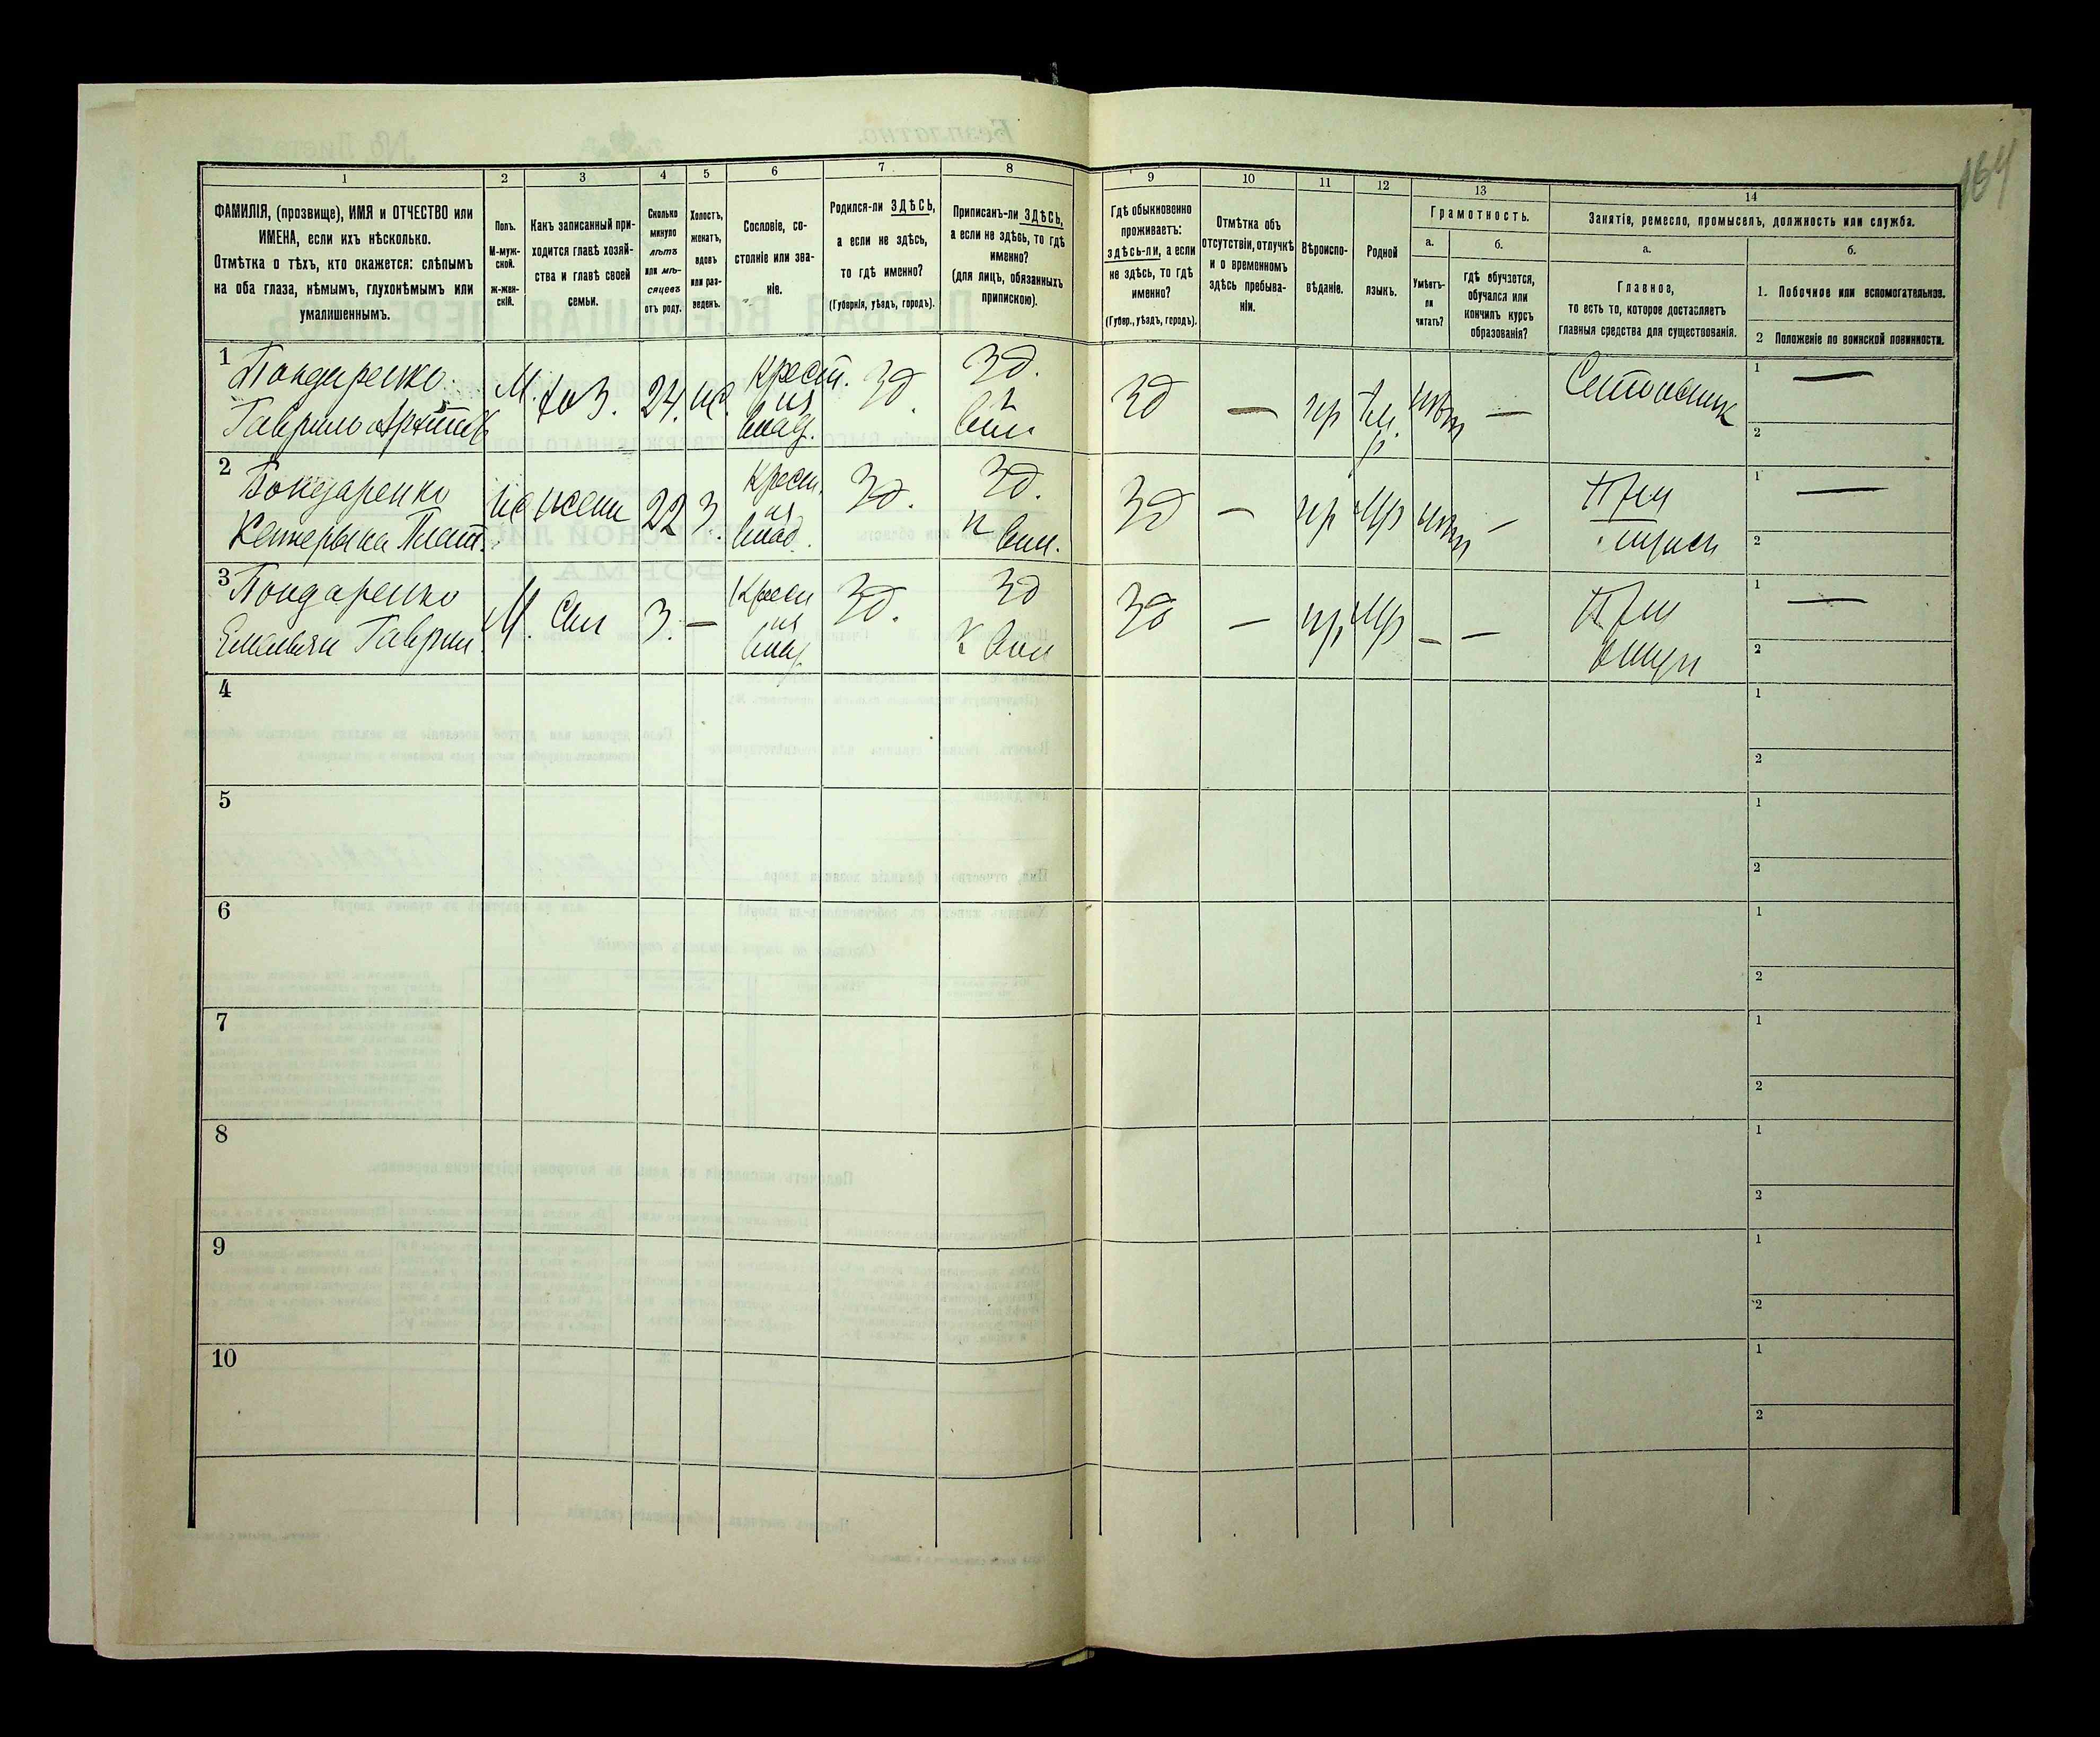 164
1
2
3
4
5
6
7
8
9
10
11
12
13
14
ФАМИЛІЯ, (прозвище), ИМЯ и ОТЧЕСТВО или
ИМЕНА, если ихъ нѣсколько.
Отмѣтка о тѣхъ, кто окажется: слѣпымъ
на оба глаза, нѣмымъ, глухонѣмымъ или
умалишеннымъ.
Полъ.
М-муж-
ской.
ж-жен-
скій.
Какъ записанный при-
ходится главѣ хозяй-
ства и главѣ своей
семьи.
Сколько
минуло
лѣтъ
или мѣ-
сяцевъ
отъ роду.
Холостъ,
женатъ,
вдовъ
или раз-
веденъ.
Сословіе, со-
стояніе или зва-
ніе.
Родился-ли ЗДѢСЬ,
а если не здѣсь,
то гдѣ именно?
(Губернія, уѣздъ, городъ).
Приписанъ-ли ЗДѢСЬ,
а если не здѣсь, то гдѣ
именно?
(для лицъ, обязанныхъ
припискою).
Гдѣ обыкновенно
проживаетъ:
здѣсь-ли, а если
не здѣсь, то гдѣ
именно?
(Губер., уѣздъ, городъ).
Отмѣтка объ
отсутствіи, отлучкѣ
и о временномъ
здѣсь пребыва-
ніи.
Вѣроиспо-
вѣданіе.
Родной
языкъ.
Грамотность.
а.
Умѣетъ-
ли
читать?
б.
гдѣ обучается,
обучался или
кончилъ курсъ
образованія?
Занятіе, ремесло, промыселъ, должность или служба.
а.
Главное,
то есть то, которое доставляетъ
главныя средства для существованія.
б.
1. Побочное или вспомогательное.
2 Положеніе по воинской повинности.
1
Бондаренко
Гаврило
М.
хоз.
24.
Крест.
из
влад.
Зд.
Зд.
Зд
—
пр
нѣт
—
1 —
2
2
Бондаренко
Катерына Плат.
жена
22
З.
Крест.
из
влад.
Зд.
Зд.
Зд
—
пр
Мр
нѣт
—
При
мужи
1 —
2
3
Бондаренко
Емельян Гаврил.
М.
Сын
3.
—
Крест
из
влад
Зд.
Зд
Зд
—
пр
Мр
—
—
При
отци
1 —
2
4
1
2
5
1
2
6
1
2
7
1
2
8
1
2
9
1
2
10
1
2